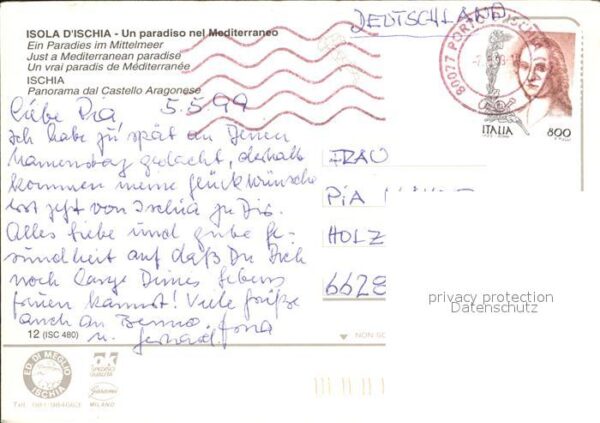 DEUTSCHLAND
ISOLA D'ISCHIA - Un paradiso nel Mediterraneo
Ein Paradies im Mittelmeer
Just a Mediterranean paradise
Un vrai paradis de Méditerranée
ISCHIA
Panorama dal Castello Aragonese
80077 PORTO D'ISCHIA
ITALIA 800
5.5.99
Liebe Pia,
ich habe zu spät an Deinen
Namenstag gedacht, deshalb
kommen meine Glückwünsche
erst jetzt von Ischia zu Dir.
Alles Liebe und gute Ge-
sundheit auf daß Du Dich
noch lange Deines Lebens
freuen kannst! Viele Grüße
auch an Benno.
u. Gerhard
FRAU
PiA
HOLZ
6628
privacy protection
Datenschutz
12 (ISC 480)
NON SC
ED. DI MEGLIO
ISCHIA
MILANO